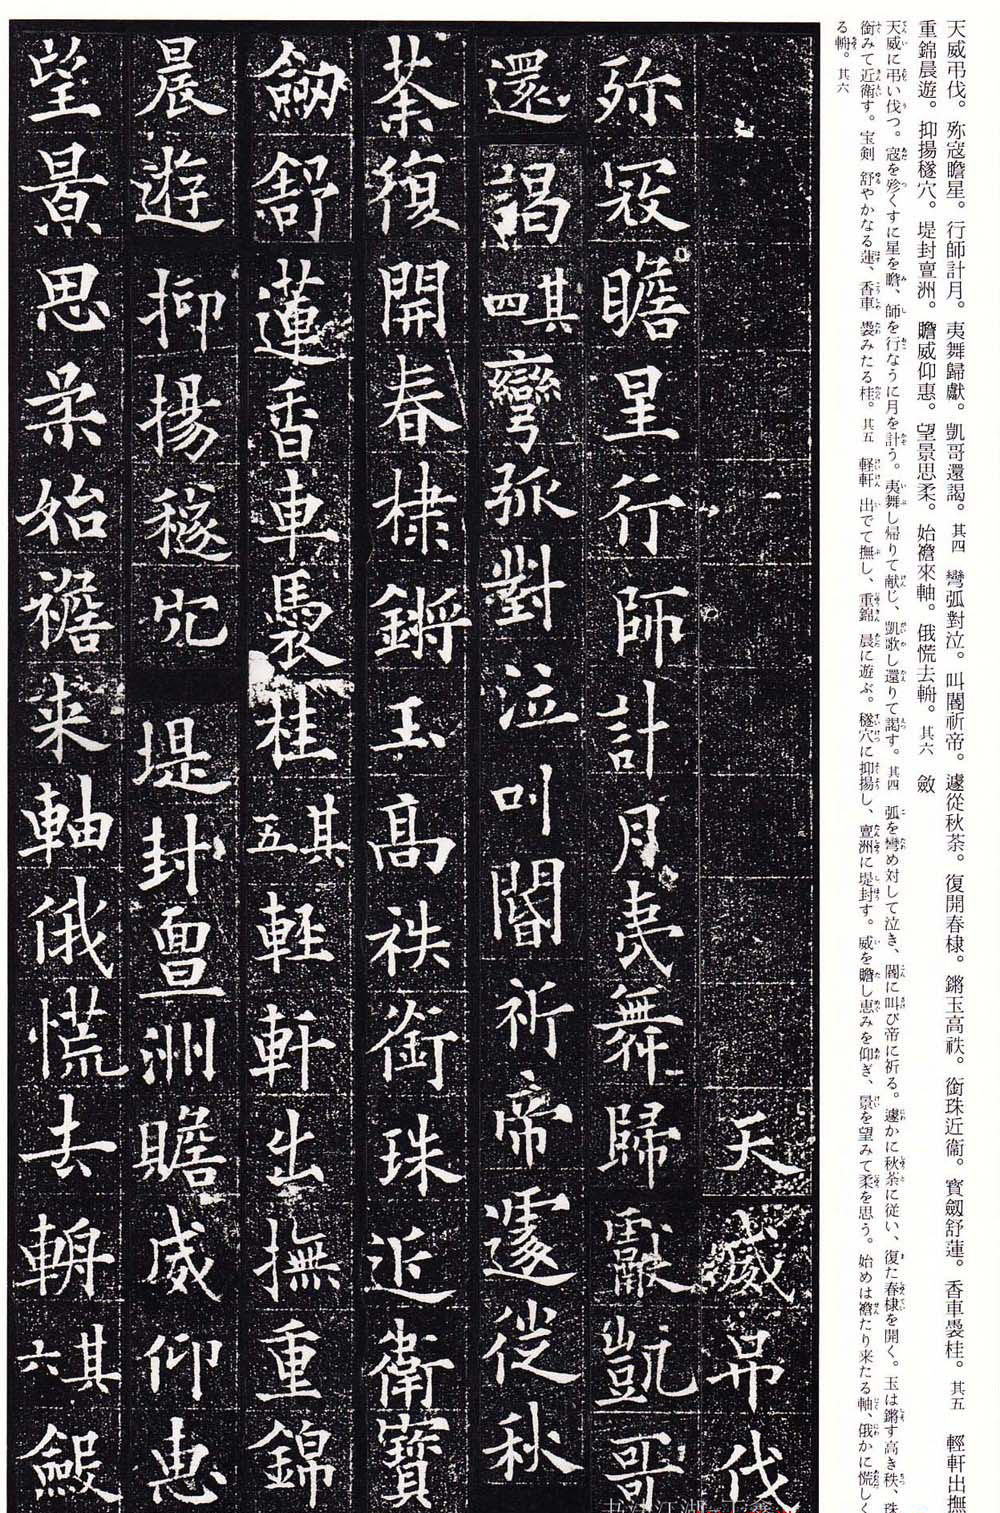 天威弔伐。弥寇瞻星。行師計月。夷舞歸獻。凱哥還謁。其四 彎弧對泣。叫閽祈帝。遽從秋荼。復開春棣。鏘玉高秩。銜珠近衞。寳劔舒蓮。香車褭桂。其五 輕軒出撫
重錦晨遊。抑揚穟穴。堤封亶洲。瞻威仰惠。望景思柔。始襜來軸。俄慌去輈。其六 斂
天威に弔い伐つ。寇を殄くすに星を瞻、師を行なうに月を計う。夷舞し帰りて献じ、凱歌し還りて謁す。其四 弧を彎め対して泣き、閽に叫び帝に祈る。遽かに秋荼に従い、復た春棣を開く。玉は鏘す高き秩、珠
銜みて近衛す。宝剣 舒やかなる蓮、香車 褭みたる桂。其五 軽軒 出でて撫し、重錦 晨に遊ぶ。穟穴に抑揚し、亶洲に堤封す。威を瞻し恵みを仰ぎ、景を望みて柔を思う。始めは襜たり来たる軸、俄かに慌しく
る輈。其六
天威弔伐
弥寇瞻星行師計月夷舞歸獻凱哥
還謁其四彎弧對泣叫閽祈帝遽從秋
荼復開春棣鏘玉高秩銜珠近衛寳
劔舒蓮香車褭桂其五輕軒出撫重錦
晨遊抑揚穟穴堤封亶洲瞻威仰惠
望景思柔始襜来軸俄慌去輈其六斂